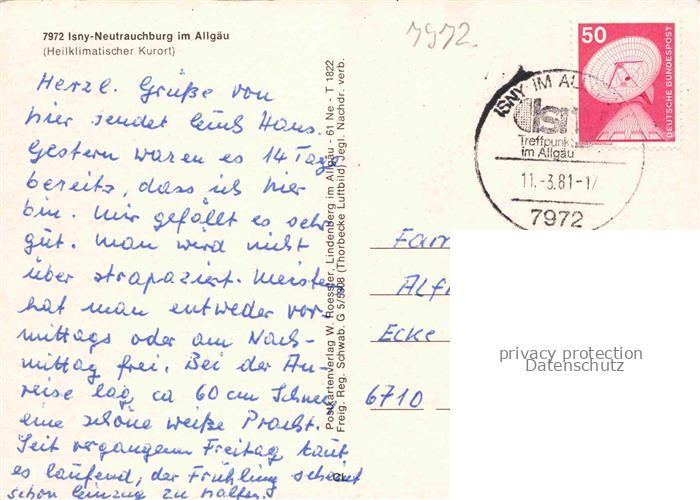 7972 Isny-Neutrauchburg im Allgäu
(Heilklimatischer Kurort)
Herzl. Grüße von
hier sendet Euch Hans.
Gestern waren es 14 Tage
bereits, dass ich hier
bin. Mir gefällt es sehr
gut. Man wird nicht
über strapaziert. Meistens
hat man entweder vor-
mittags oder am Nach-
mittag frei. Bei der An-
reise lag ca 60 cm Schnee
eine schöne weiße Pracht.
Seit vergangenem Freitag taut
es laufend, der Frühling scheint
schon Einzug zu halten.
Postkartenverlag W. Roessler, Lindenberg im Allgäu - 61 Ne - T 1822
Freig. Reg. Schwab. G 5/5908 (Thorbecke Luftbild) Jegl. Nachdr. verb.
7972
50
DEUTSCHE BUNDESPOST
ISNY IM AL
Isn
Treffpunk
im Allgäu
11.-3.81-17
7972
Fam
Alf
Ecke
6710
privacy protection
Datenschutz